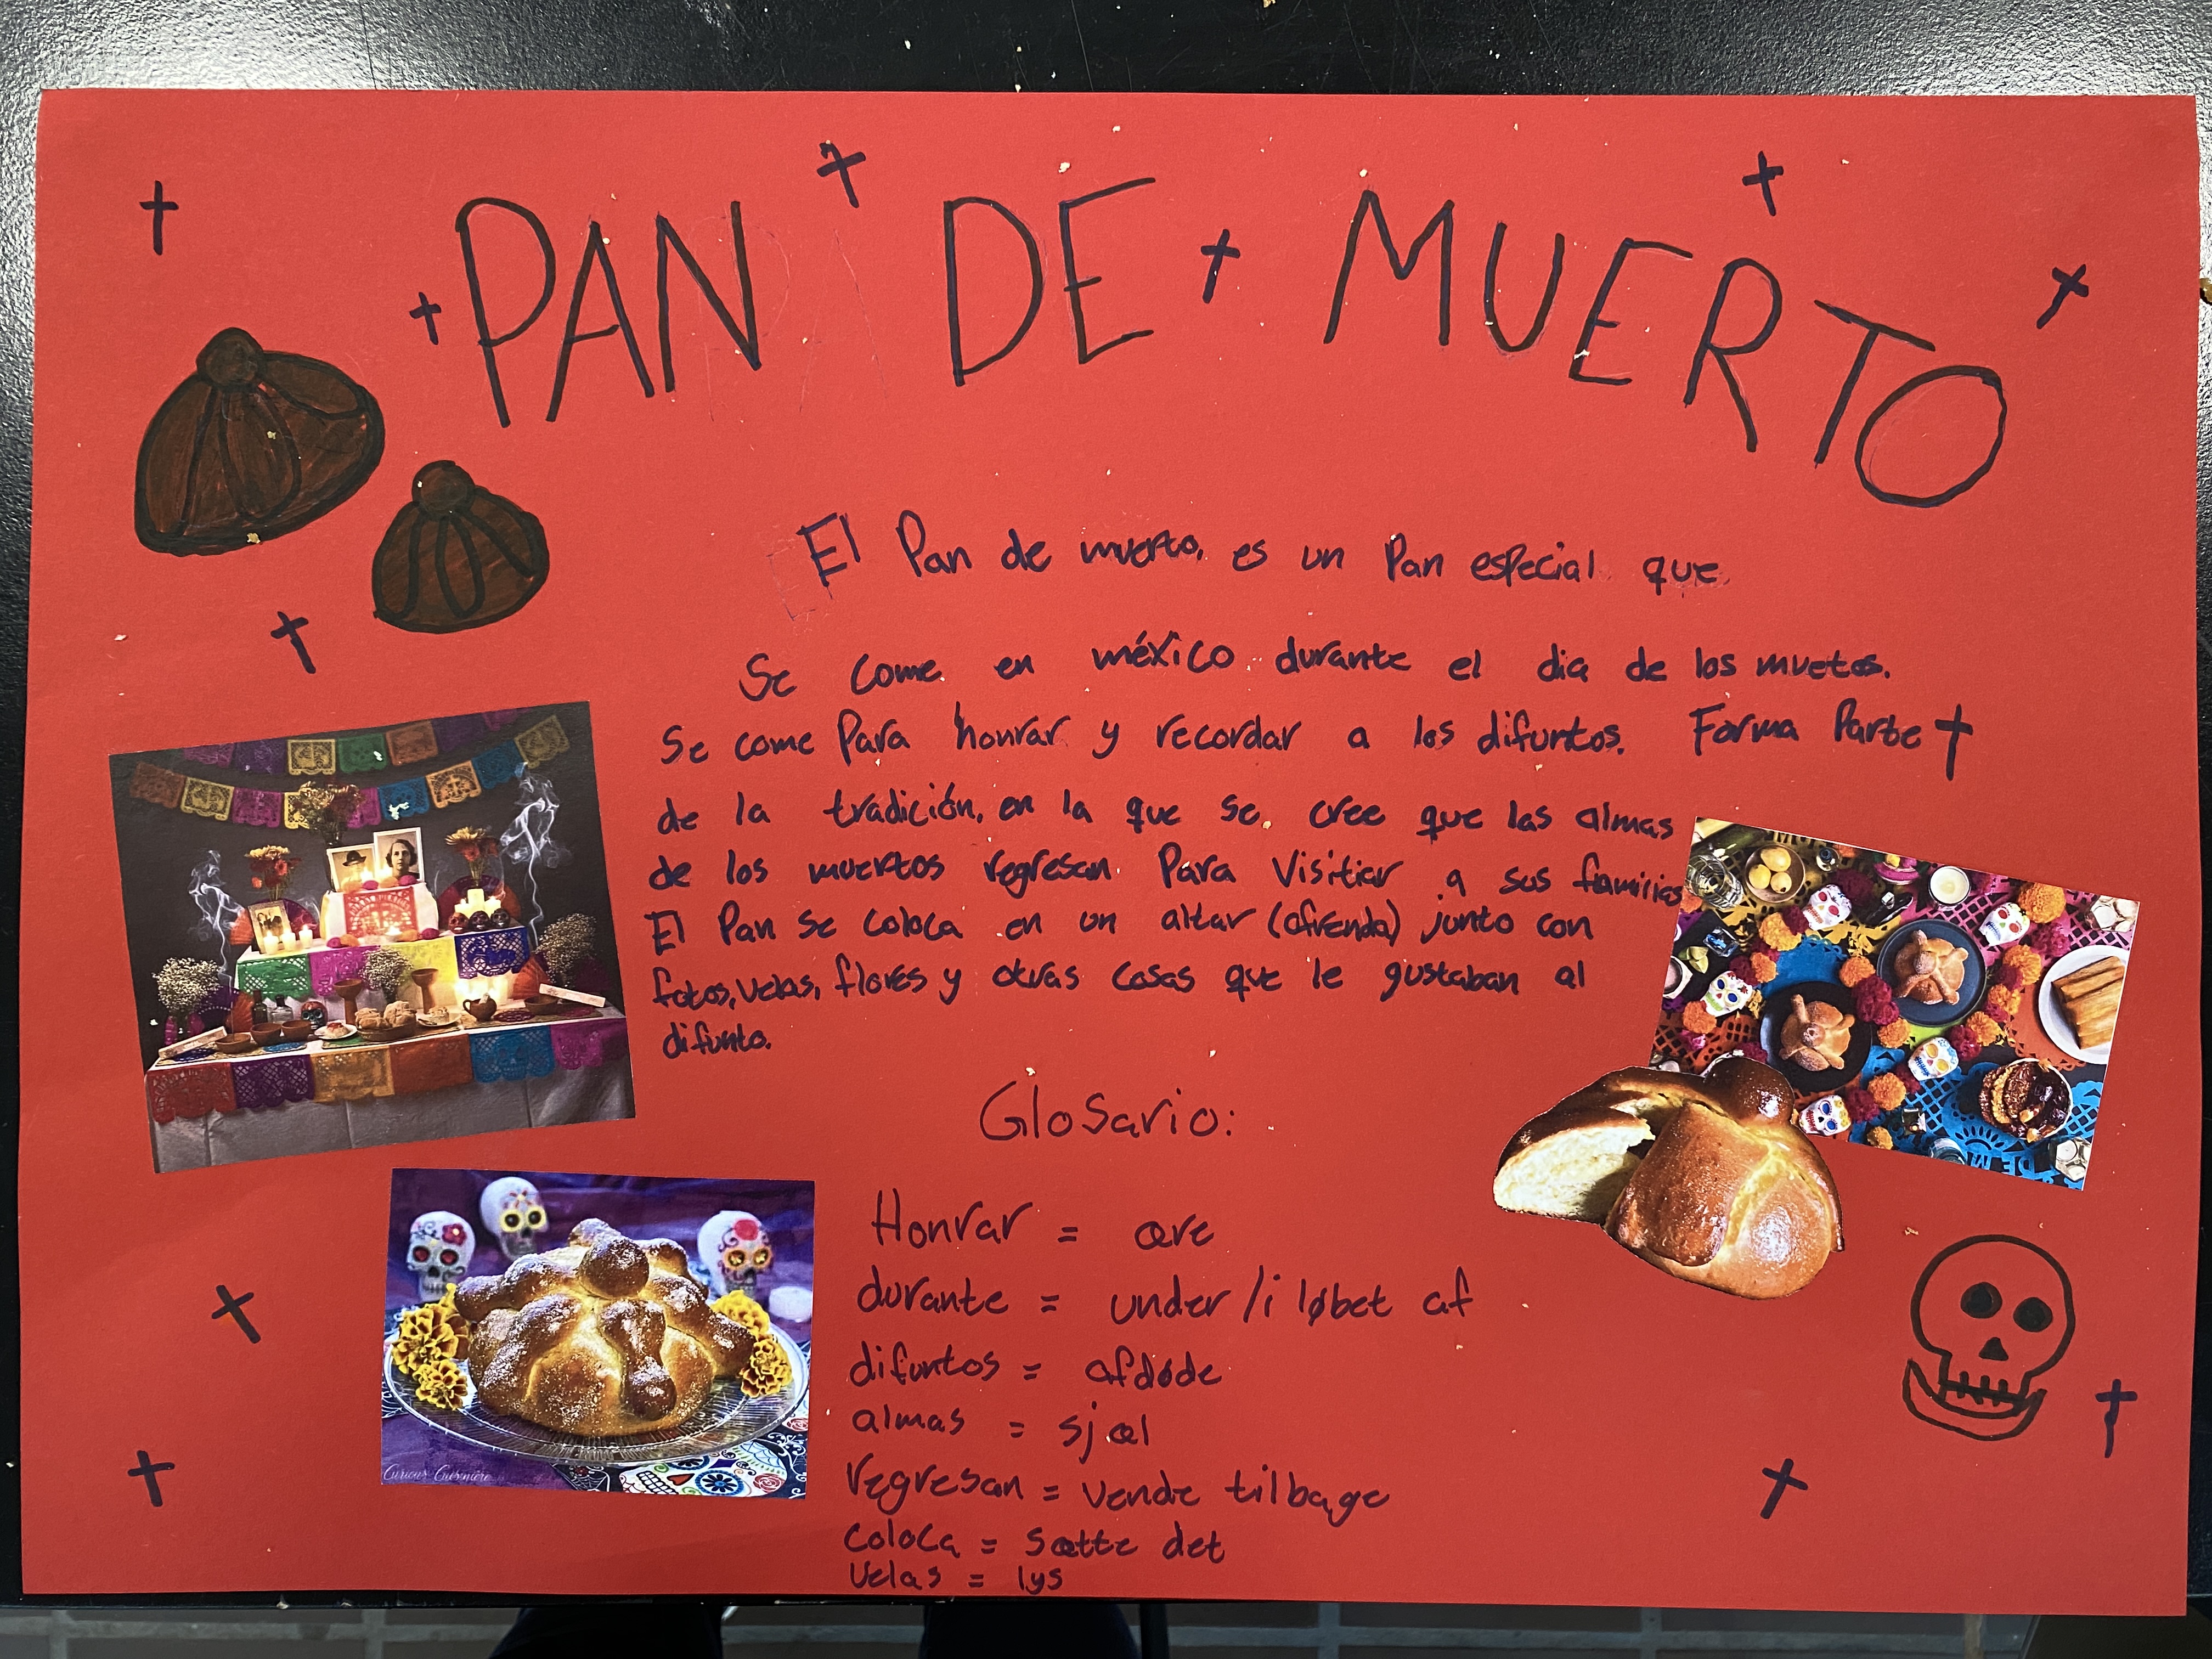 PAN DE MUERTO
El Pan de muerto, es un Pan especial que
Se come en méxico durante el dia de los muetos.
Se come Para honrar y recordar a los difuntos. Forma Parte
de la tradición, en la que se cree que las almas
de los muertos regresan Para Visitiar a sus familias
El Pan se coloca en un altar (ofrenda) junto con
fotos, velas, flores y otras cosas que le gustaban al
difunto.
Glosario:
Honrar = ære
durante = under/i løbet af
difuntos = afdøde
almas = sjæl
regresan = vende tilbage
Coloca = sætte det
Velas = lys
Curious Cuisinière
DE M